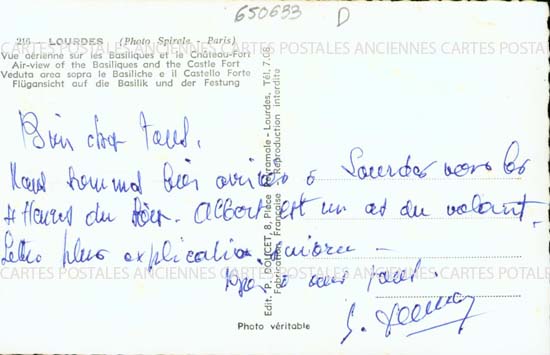 650633 D
216 - LOURDES (Photo Spirale - Paris)
CARTES POSTALES ANCIENNES CARTES POSTALES ANCIENNES CARTES POSTALES
Vue aérienne sur les Basiliques et le Château-Fort
Air-view of the Basiliques and the Castle Fort
Veduta area sopra le Basiliche e il Castello Forte
Flügansicht auf die Basilik und der Festung
Bien cher tous.
Nous sommes bien arrivés à Lourdes vers les
7 Heures du Soir. Albert est un as du volant.
Lettre plus explication suivra -
à vous tous.
Edit. P. DOUCET, 8, Place Peyramale - Lourdes, Tél. 7.08
Fabrication Française - Reproduction interdite
Photo véritable